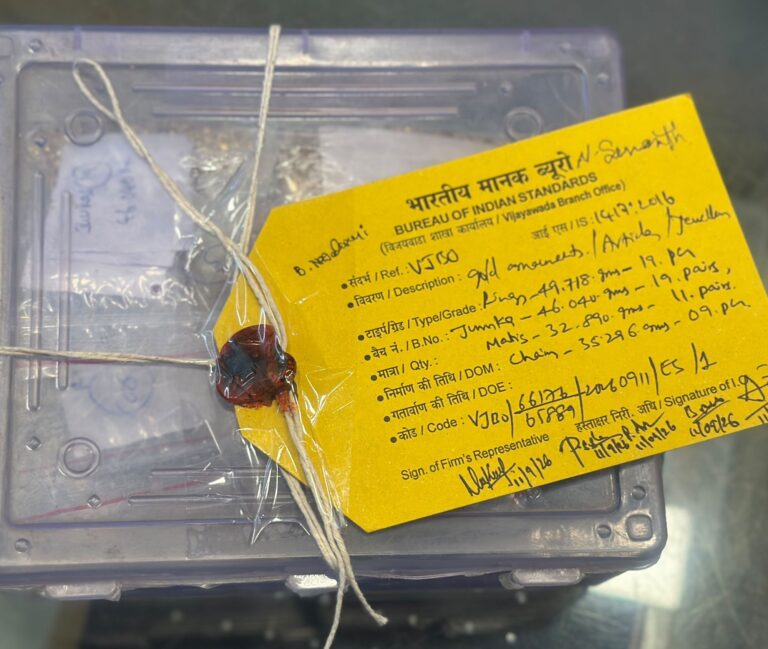 N. Samanth
भारतीय मानक ब्यूरो
BUREAU OF INDIAN STANDARDS
(विजयवाडा शाखा कार्यालय / Vijayawada Branch Office)
आई एस / IS : 1417:2016
• संदर्भ / Ref. : VJBO
• विवरण / Description : gold ornaments / Articles / Jewellery
• टाइप/ग्रेड / Type/Grade : Rings - 49.718 gms - 19. pcs
• बैच नं. / B.No. : Jumka - 46.040 gms - 19. pairs,
• मात्रा / Qty. : Matis - 32.890 gms - 11. pairs.
• निर्माण की तिथि / DOM : Chain - 35.296 gms - 09. pcs
• गतार्वाण की तिथि / DOE :
• कोड / Code : VJBO/ 66176/65889 /20260911/ES/1
Sign. of Firm's Representative
हस्ताक्षर निरी. अधि / Signature of I.O.
11/9/26
11/9/26
11/09/26
11/09/26